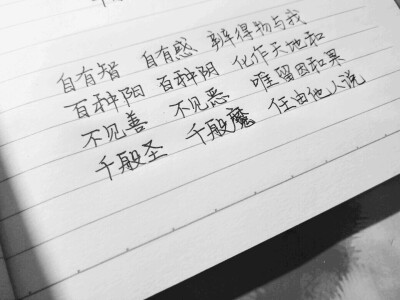 自有智 自有感 辩得物与我
百种阳 百种阴 化作天地和
不见善 不见恶 唯留因和果
千般圣 千般魔 任由他人说